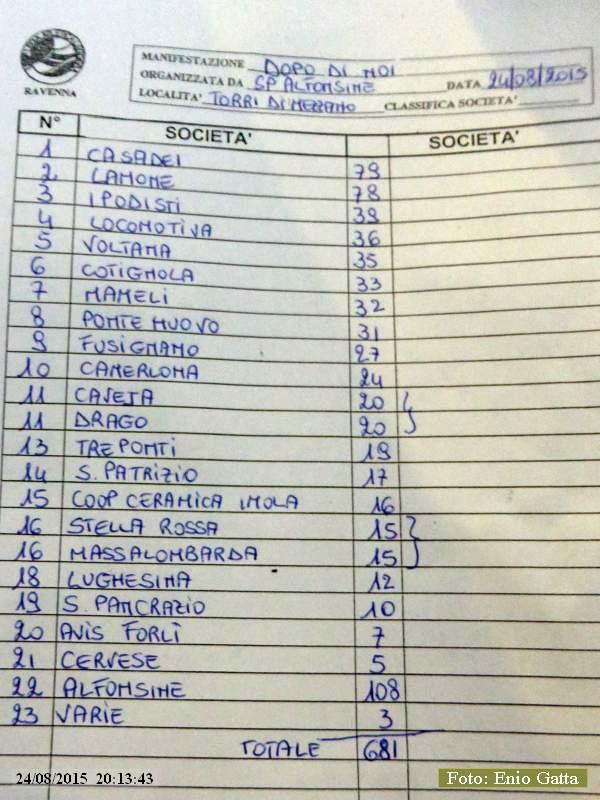 RAVENNA
MANIFESTAZIONE DOPO DI NOI
ORGANIZZATA DA SP ALFONSINE DATA 24/08/2015
LOCALITA' TORRI DI MEZZANO CLASSIFICA SOCIETA'
N° SOCIETA' SOCIETA'
1 CASADEI 79
2 LAMONE 78
3 IPODISTI 39
4 LOCOMOTIVA 36
5 VOLTANA 35
6 COTIGNOLA 33
7 MAMELI 32
8 PONTE NUOVO 31
9 FUSIGNANO 27
10 CAMERLONA 24
11 CAVEJA 20
11 DRAGO 20
13 TRE PONTI 19
14 S. PATRIZIO 17
15 COOP CERAMICA IMOLA 16
16 STELLA ROSSA 15
16 MASSALOMBARDA 15
18 LUGHESINA 12
19 S. PANCRAZIO 10
20 AVIS FORLÌ 7
21 CERVESE 5
22 ALFONSINE 108
23 VARIE 3
TOTALE 681
24/08/2015 20:13:43
Foto: Enio Gatta